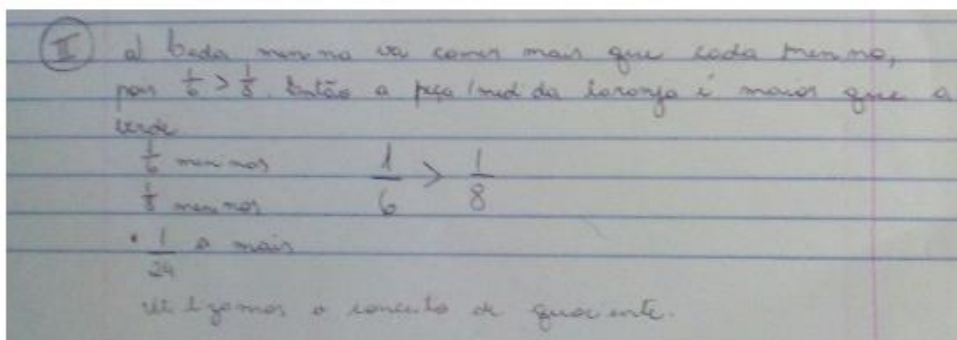 II a) Cada menina vai comer mais que cada menino,
pois 1/6 > 1/8. Então a peça/medida laranja é maior que a
verde
1/6 meninas 1/6 > 1/8
1/8 meninos
• 1/24 a mais
Utilizamos o conceito de quociente.